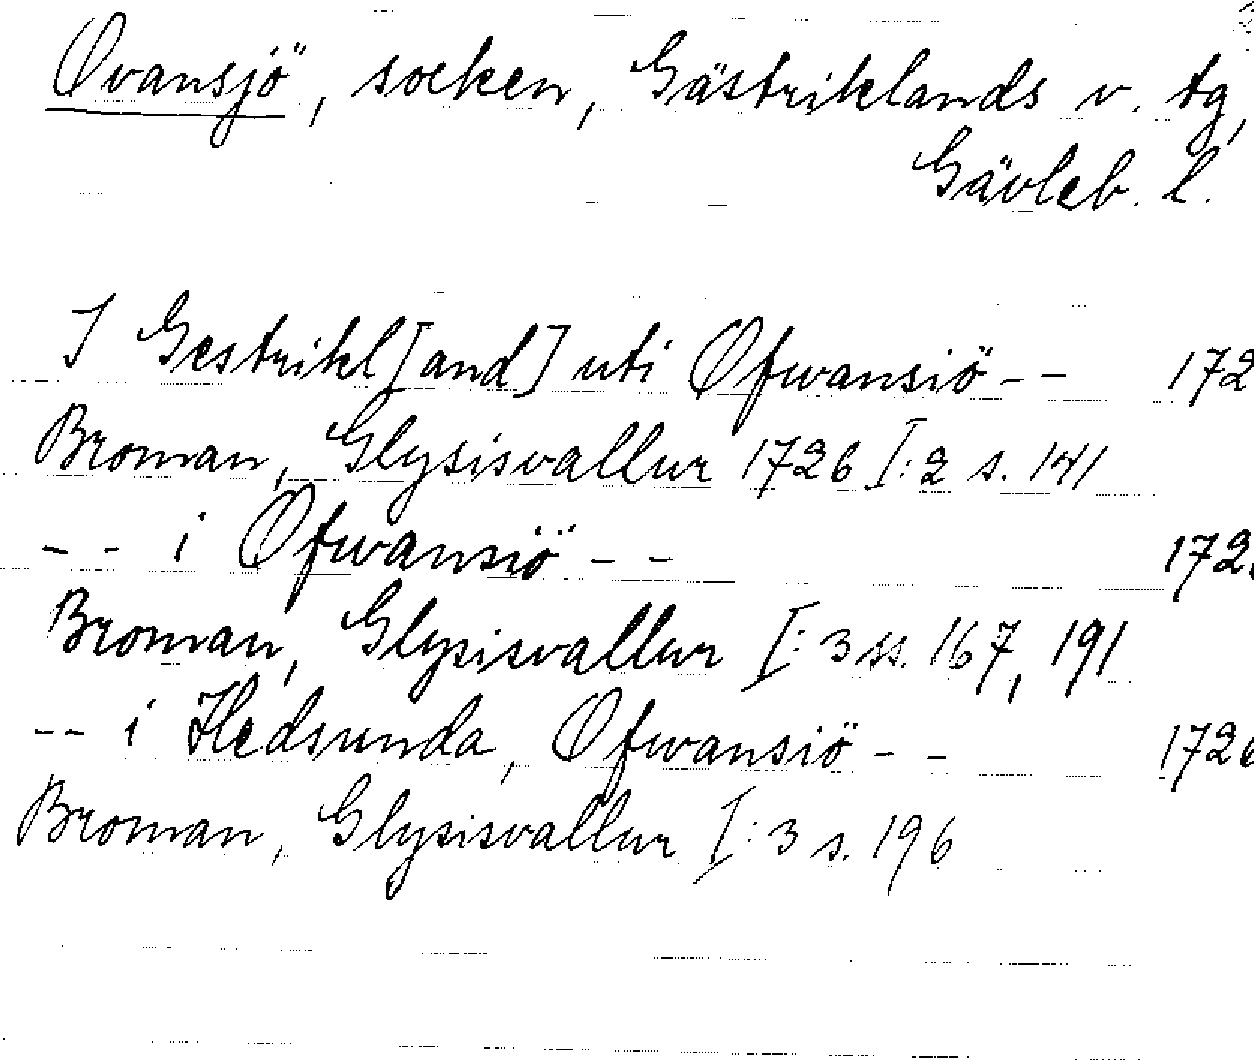 Ovansjö, socken, Gästriklands v. tg,
Gävleb. l.
I Gestrikl[and] uti Ofwansiö -- 172
Broman, Glysisvallur 1726 I:2 s. 141
-- i Ofwansiö -- 172
Broman, Glysisvallur I:3 ss. 167, 191
-- i Hedsunda, Ofwansiö -- 1726
Broman, Glysisvallur I:3 s. 196